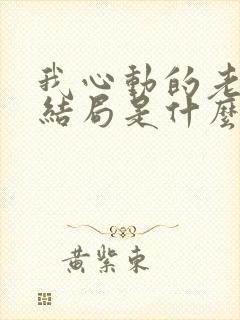 我心動的老
結局是什麼
黃紫東